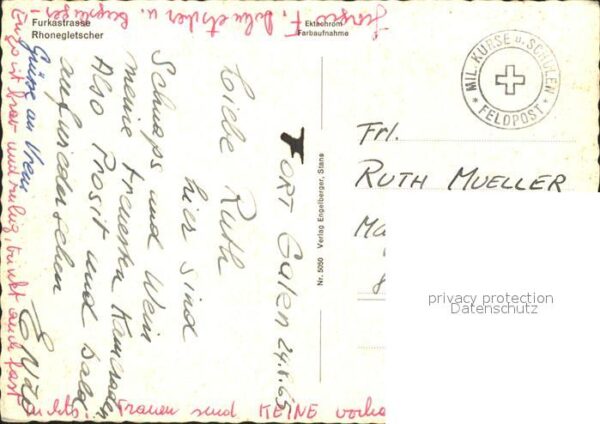 Furkastrasse
Rhonegletscher
Ektachrom
Farbaufnahme
MIL. KURSE u. SCHULEN
* FELDPOST *
Frl.
RUTH MUELLER
Ma
8
privacy protection
Datenschutz
Nr. 5050 Verlag Engelberger, Stans
FORT Galen 24.8.65
Liebe Ruth
hier sind
Schnaps und Wein
meine treuesten Kameraden
Also Prosit und bald
aufwiedersehen
Enzo
Grüsse an Vreni
Enzo ist brav und ruhig, trinkt auch fast
nichts. Frauen sind KEINE vorha
F. Dolmetscher u.